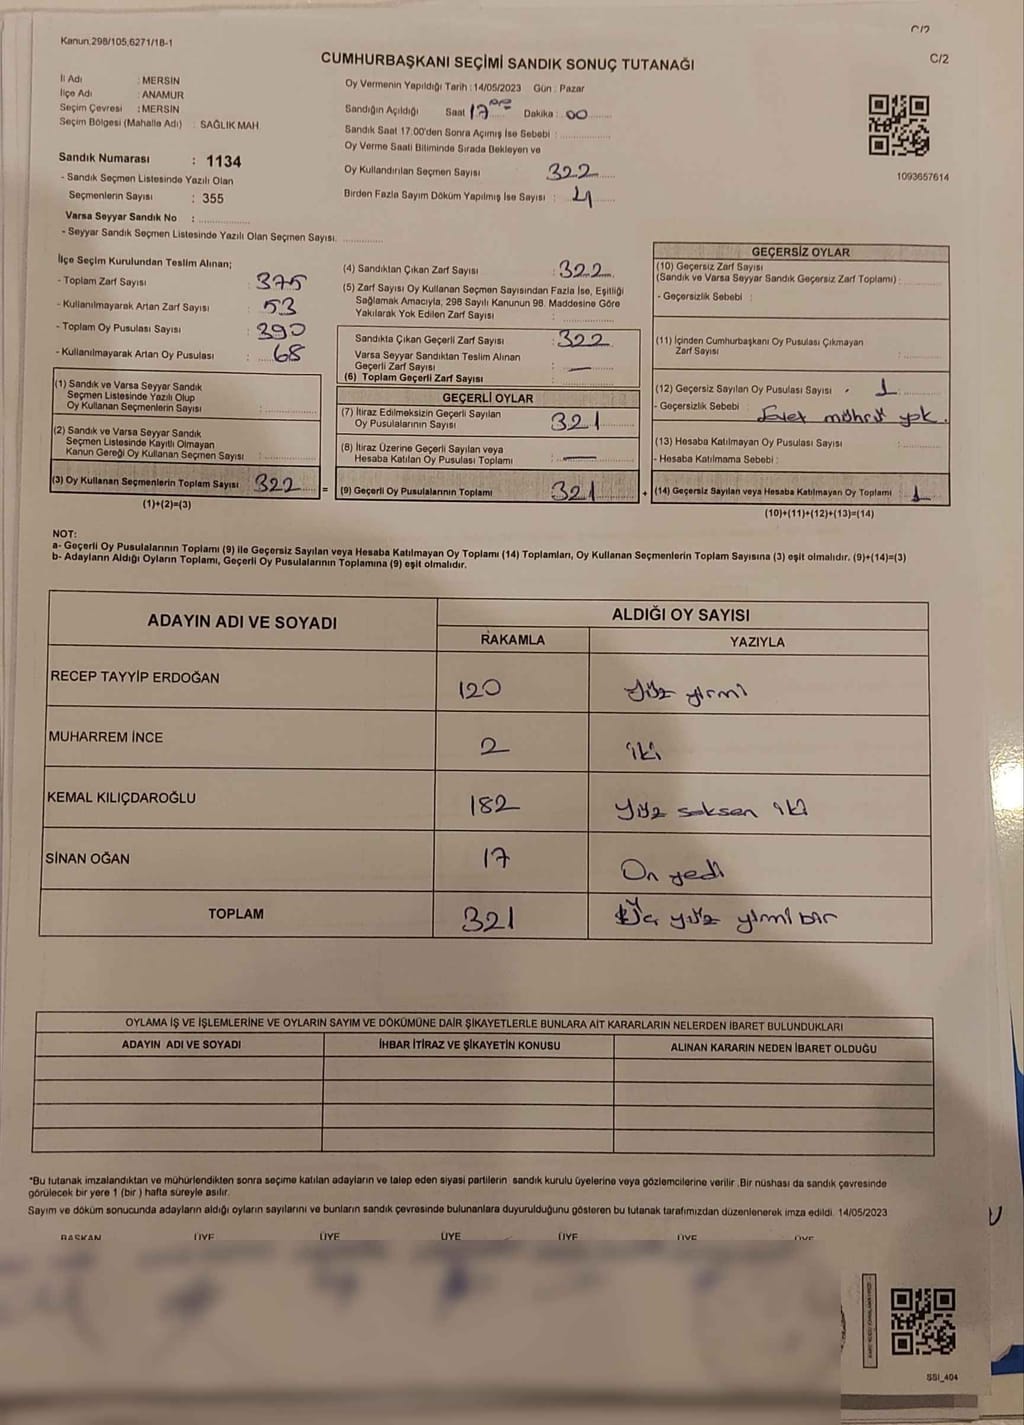 C/2
Kanun.298/105,6271/18-1
C/2
CUMHURBAŞKANI SEÇİMİ SANDIK SONUÇ TUTANAĞI
İl Adı : MERSİN
İlçe Adı : ANAMUR
Seçim Çevresi : MERSİN
Seçim Bölgesi (Mahalle Adı) : SAĞLIK MAH
Oy Vermenin Yapıldığı Tarih : 14/05/2023 Gün : Pazar
Sandığın Açıldığı Saat 17 Dakika : 00
Sandık Saat 17.00'den Sonra Açımış İse Sebebi :
Oy Verme Saati Bitiminde Sırada Bekleyen ve
Oy Kullandırılan Seçmen Sayısı 322
Birden Fazla Sayım Döküm Yapılmış İse Sayısı : 4
1093657614
Sandık Numarası : 1134
- Sandık Seçmen Listesinde Yazılı Olan
Seçmenlerin Sayısı : 355
Varsa Seyyar Sandık No :
- Seyyar Sandık Seçmen Listesinde Yazılı Olan Seçmen Sayısı.
İlçe Seçim Kurulundan Teslim Alınan;
- Toplam Zarf Sayısı : 375
- Kullanılmayarak Artan Zarf Sayısı : 53
- Toplam Oy Pusulası Sayısı : 390
- Kullanılmayarak Artan Oy Pusulası : 68
(1) Sandık ve Varsa Seyyar Sandık
Seçmen Listesinde Yazılı Olup
Oy Kullanan Seçmenlerin Sayısı :
(2) Sandık ve Varsa Seyyar Sandık
Seçmen Listesinde Kayıtlı Olmayan
Kanun Gereği Oy Kullanan Seçmen Sayısı :
(3) Oy Kullanan Seçmenlerin Toplam Sayısı 322 =
(1)+(2)=(3)
(4) Sandıktan Çıkan Zarf Sayısı : 322
(5) Zarf Sayısı Oy Kullanan Seçmen Sayısından Fazla İse, Eşitliği
Sağlamak Amacıyla, 298 Sayılı Kanunun 98. Maddesine Göre
Yakılarak Yok Edilen Zarf Sayısı :
Sandıkta Çıkan Geçerli Zarf Sayısı : 322
Varsa Seyyar Sandıktan Teslim Alınan
Geçerli Zarf Sayısı : —
(6) Toplam Geçerli Zarf Sayısı :
GEÇERLİ OYLAR
(7) İtiraz Edilmeksizin Geçerli Sayılan
Oy Pusulalarının Sayısı 321
(8) İtiraz Üzerine Geçerli Sayılan veya
Hesaba Katılan Oy Pusulası Toplamı : —
(9) Geçerli Oy Pusulalarının Toplamı 321 +
GEÇERSİZ OYLAR
(10) Geçersiz Zarf Sayısı
(Sandık ve Varsa Seyyar Sandık Geçersiz Zarf Toplamı) :
- Geçersizlik Sebebi :
(11) İçinden Cumhurbaşkanı Oy Pusulası Çıkmayan
Zarf Sayısı :
(12) Geçersiz Sayılan Oy Pusulası Sayısı 1
- Geçersizlik Sebebi : Evet mührü yok.
(13) Hesaba Katılmayan Oy Pusulası Sayısı :
- Hesaba Katılmama Sebebi :
(14) Geçersiz Sayılan veya Hesaba Katılmayan Oy Toplamı 1
(10)+(11)+(12)+(13)=(14)
NOT:
a- Geçerli Oy Pusulalarının Toplamı (9) ile Geçersiz Sayılan veya Hesaba Katılmayan Oy Toplamı (14) Toplamları, Oy Kullanan Seçmenlerin Toplam Sayısına (3) eşit olmalıdır. (9)+(14)=(3)
b- Adayların Aldığı Oyların Toplamı, Geçerli Oy Pusulalarının Toplamına (9) eşit olmalıdır.
ADAYIN ADI VE SOYADI ALDIĞI OY SAYISI
RAKAMLA YAZIYLA
RECEP TAYYİP ERDOĞAN 120 Yüz yirmi
MUHARREM İNCE 2 iki
KEMAL KILIÇDAROĞLU 182 Yüz seksen iki
SİNAN OĞAN 17 On yedi
TOPLAM 321 Üç yüz yirmi bir
OYLAMA İŞ VE İŞLEMLERİNE VE OYLARIN SAYIM VE DÖKÜMÜNE DAİR ŞİKAYETLERLE BUNLARA AİT KARARLARIN NELERDEN İBARET BULUNDUKLARI
ADAYIN ADI VE SOYADI İHBAR İTİRAZ VE ŞİKAYETİN KONUSU ALINAN KARARIN NEDEN İBARET OLDUĞU
*Bu tutanak imzalandıktan ve mühürlendikten sonra seçime katılan adayların ve talep eden siyasi partilerin sandık kurulu üyelerine veya gözlemcilerine verilir .Bir nüshası da sandık çevresinde
görülecek bir yere 1 (bir ) hafta süreyle asılır.
Sayım ve döküm sonucunda adayların aldığı oyların sayılarını ve bunların sandık çevresinde bulunanlara duyurulduğunu gösteren bu tutanak tarafımızdan düzenlenerek imza edildi. 14/05/2023
BAŞKAN ÜYE ÜYE ÜYE ÜYE ÜYE ÜYE
SSI_404